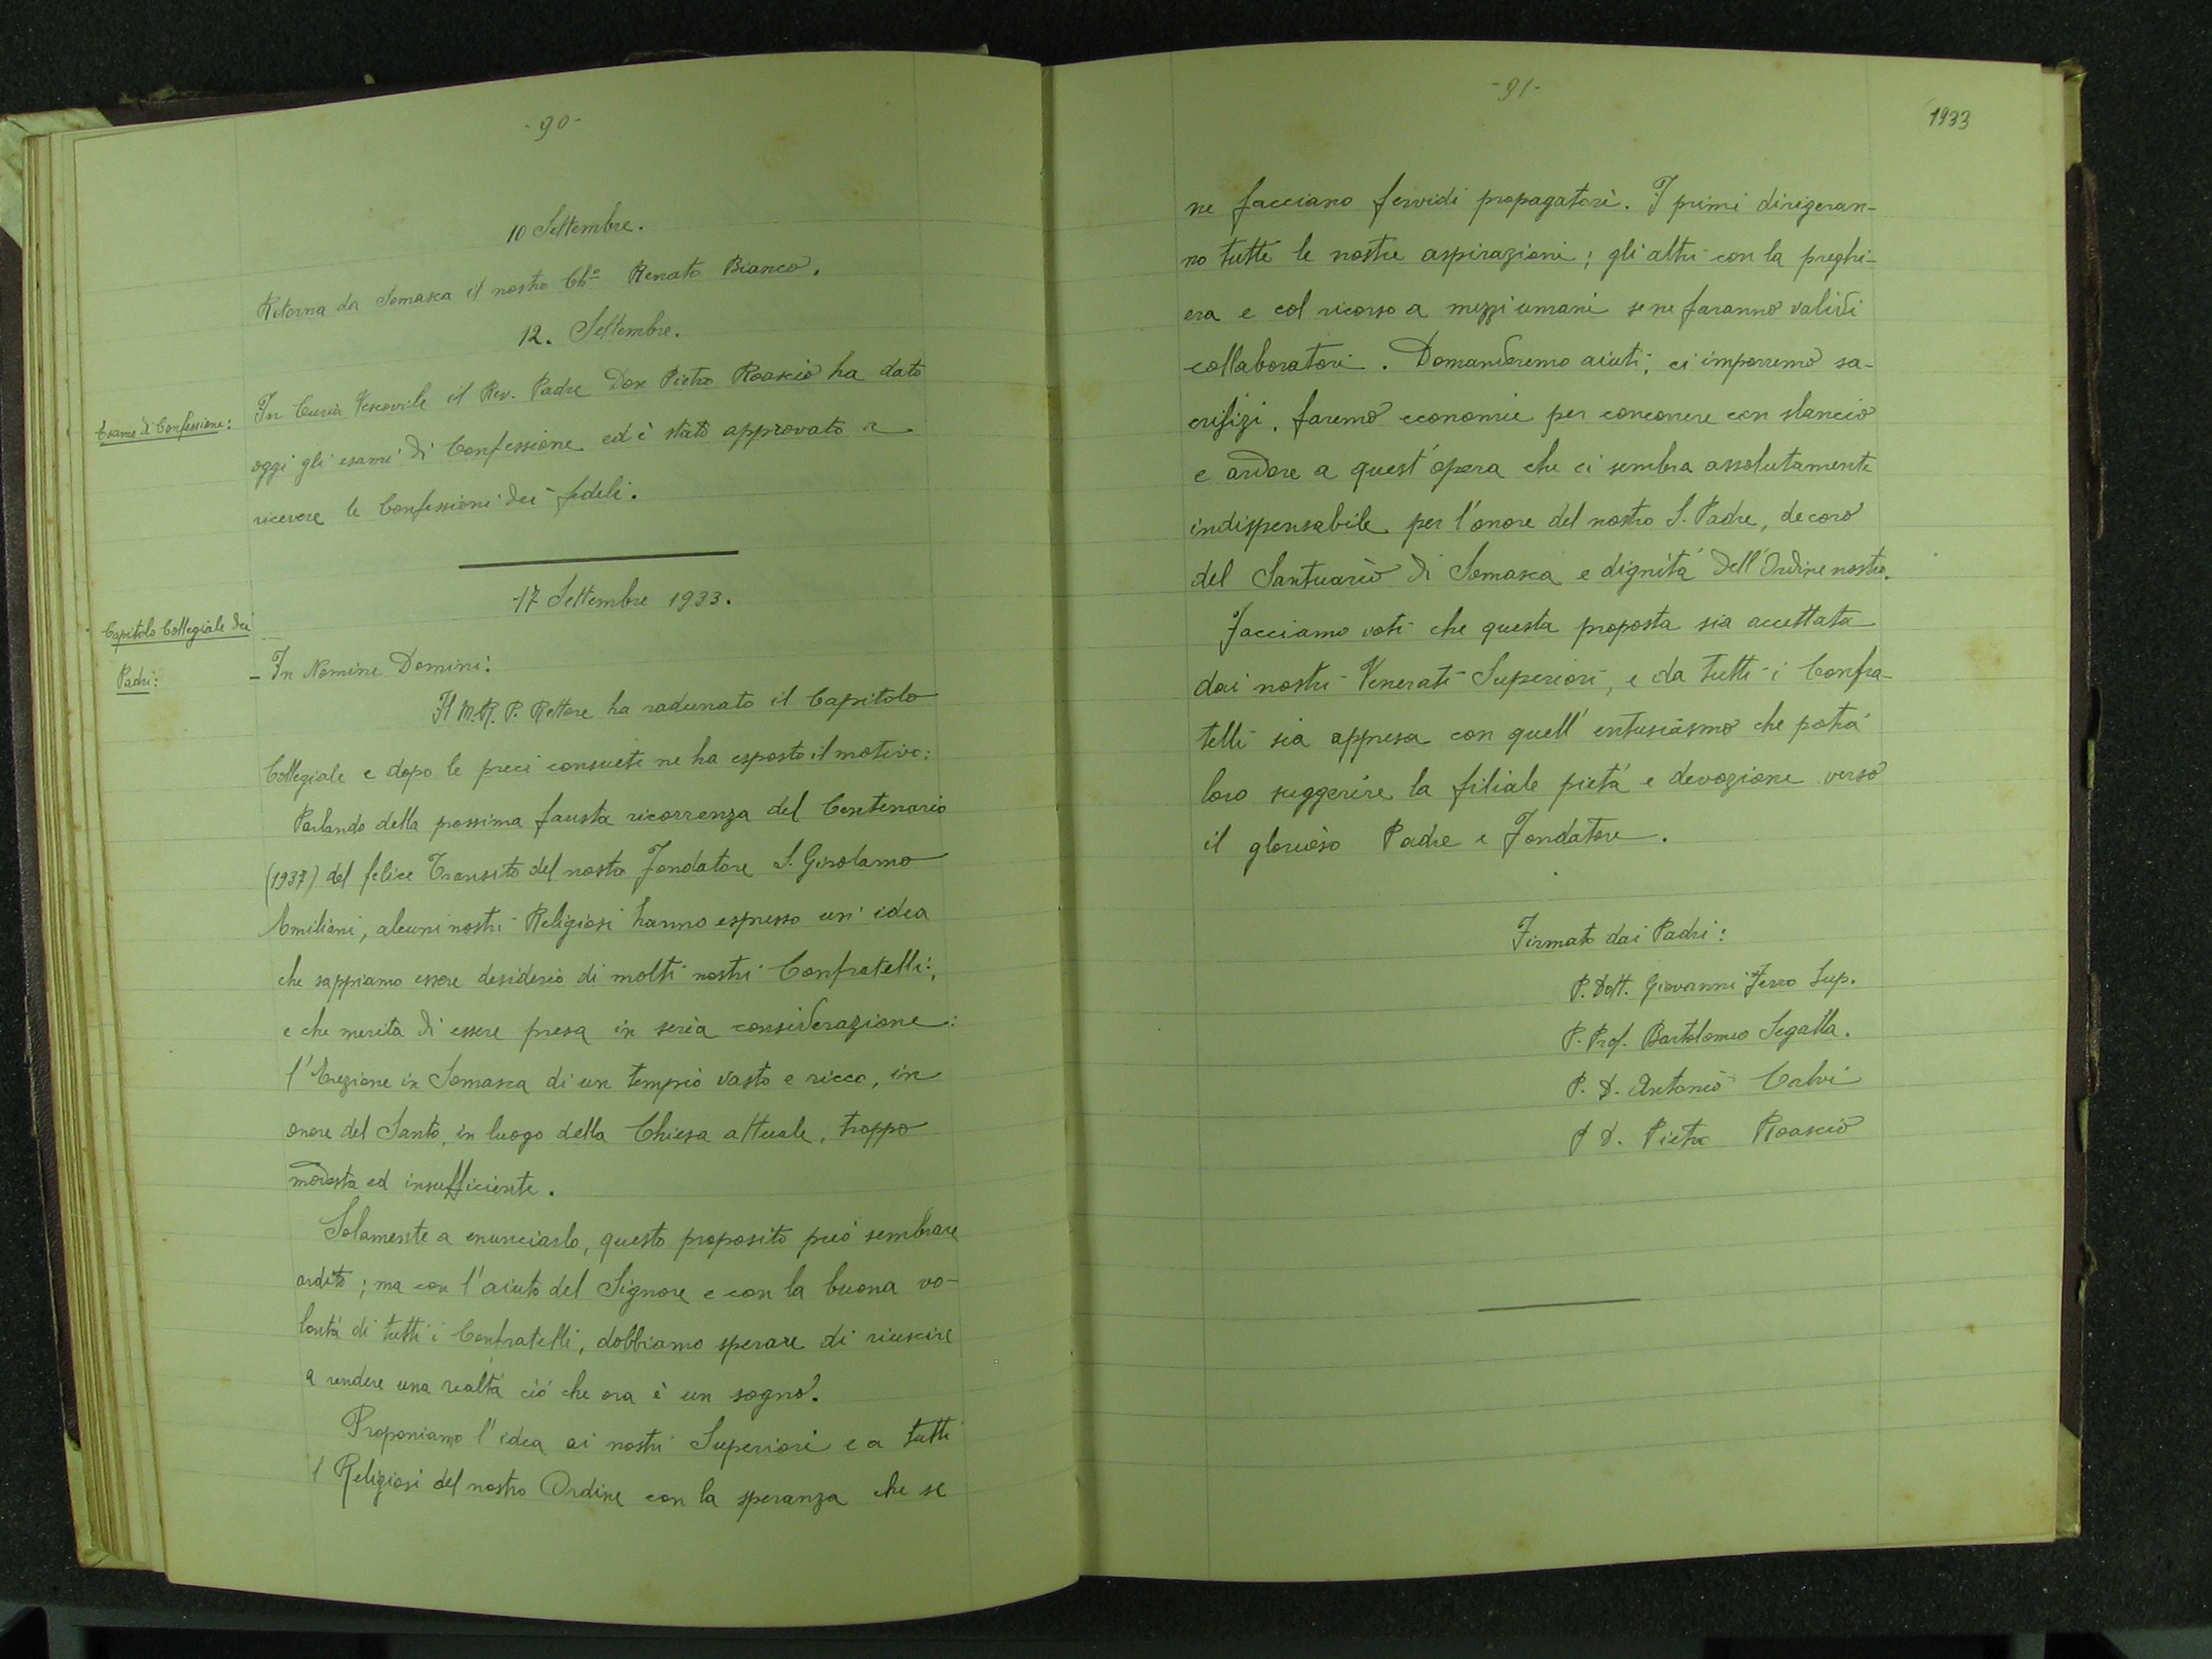 - 90 -
10 Settembre.
Ritorna da Somasca il nostro Ch.º Renato Bianco.
12. Settembre.
Esame di Confessione:
In Curia Vescovile il Rev. Padre Don Pietro Roascio ha dato
oggi gli esami di Confessione ed è stato approvato a
ricevere le Confessioni dei fedeli.
17 Settembre 1933.
Capitolo Collegiale dei
Padri:
- In Nomine Domini:
Il M. R. P. Rettore ha radunato il Capitolo
Collegiale e dopo le preci consuete ne ha esposto il motivo:
Parlando della prossima fausta ricorrenza del Centenario
(1937) del felice Transito del nostro Fondatore S. Girolamo
Emiliani, alcuni nostri Religiosi hanno espresso un' idea
che sappiamo essere desiderio di molti nostri Confratelli,
e che merita di essere presa in seria considerazione:
l'Erezione in Somasca di un tempio vasto e ricco, in
onore del Santo, in luogo della Chiesa attuale, troppo
modesta ed insufficiente.
Solamente a enunciarlo, questo proposito può sembrare
ardito; ma con l'aiuto del Signore e con la buona vo-
lontà di tutti i Confratelli, dobbiamo sperare di riuscire
a rendere una realtà ciò che ora è un sogno.
Proponiamo l'idea ai nostri Superiori e a tutti
i Religiosi del nostro Ordine con la speranza che se
- 91 -
1933
ne facciano fervidi propagatori. I primi dirigeran-
no tutte le nostre aspirazioni; gli altri con la preghi-
era e col ricorso a mezzi umani se ne faranno validi
collaboratori. Domanderemo aiuti, ci imporremo sa-
crifizi, faremo economie per concorrere con slancio
e ardore a quest'opera che ci sembra assolutamente
indispensabile per l'onore del nostro S. Padre, decoro
del Santuario di Somasca e dignità dell'Ordine nostro.
Facciamo voti che questa proposta sia accettata
dai nostri Venerati Superiori, e da tutti i Confra-
telli sia appresa con quell'entusiasmo che potrà
loro suggerire la filiale pietà e devozione verso
il glorioso Padre e Fondatore.
Firmato dai Padri:
P. Dott. Giovanni Ferro Sup.
P. Prof. Bartolomeo Segalla.
P. D. Antonio Calvi
P D. Pietro Roascio